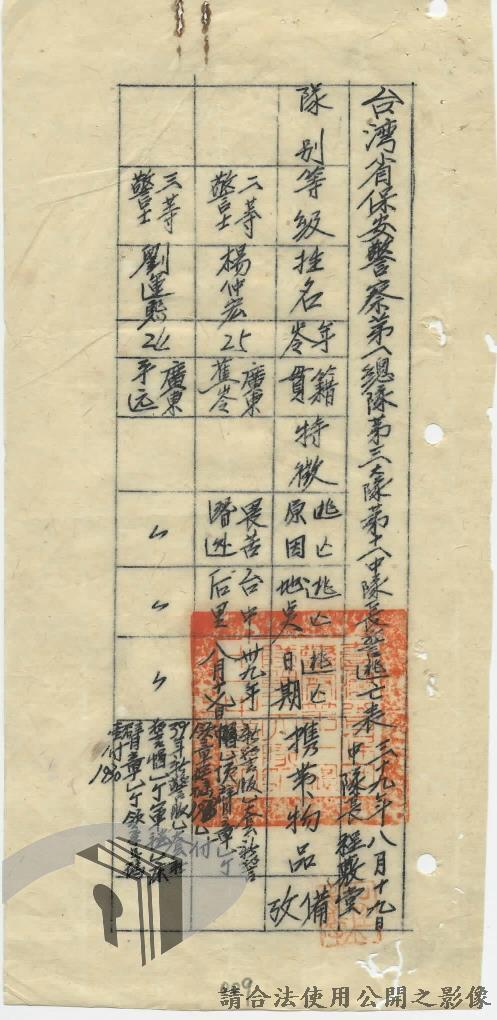 台湾省保安警察第八總隊第三大隊第十八中隊長警逃亡表 三十九年八月十九日
中隊長 程敷堂
隊別
等級
姓名
年岺
籍貫
特徵
逃亡原因
逃亡地奌
逃亡日期
攜帶物品
備攷
二等警士
楊仲宏
25
廣東蕉岺
畏苦潛逃
台中后里
卅九年八月十八日
三等警士
劉運
24
廣東平远
〃
〃
〃
請合法使用公開之影像